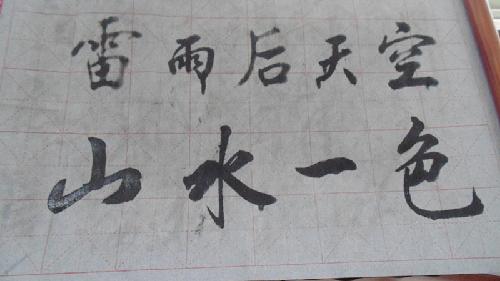 雷雨后天空
山水一色